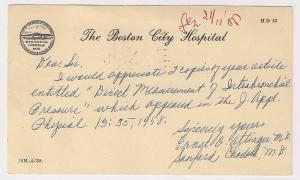 Dez 21/11'58
H D 67
The Boston City Hospital
Dear Sir.
I would appreciate 2 copies of your article
entitled "Direct Measurement of Intrabronchial
Pressure" which appeared in the J. Appl.
Physiol 12:35, 1958.
Sincerely yours
Ernst O. Attinger M.D.
Sanford Chodosh, M.D.
10M-4/58.